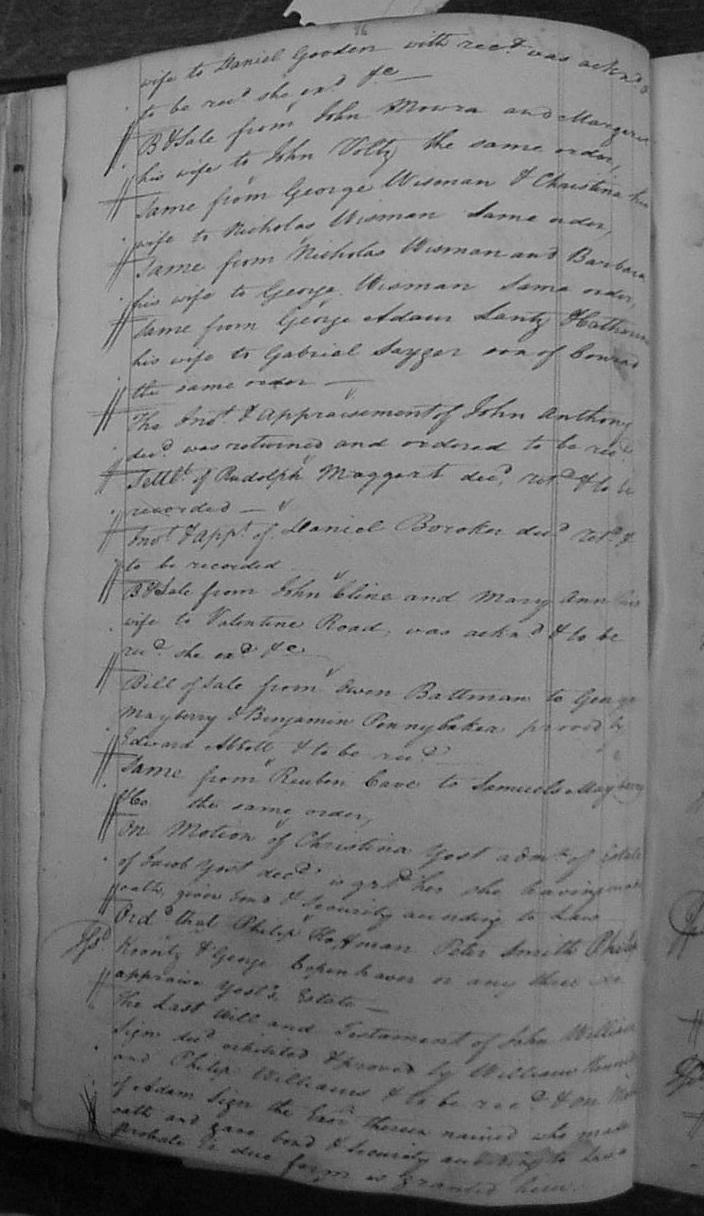 76
wife to Daniel Gooden with recd was acknd &
to be recd she exd &c —
B & Sale from John Mowra and Margaret
his wife to John Voltz the same order,
Same from George Wisman & Christina his
wife to Nicholas Wisman Same order,
Same from Nicholas Wisman and Barbara
his wife to George Wisman Same order,
Same from George Adam Lantz & Catharine
his wife to Gabriel Sayger son of Conrad
the same order —
The Invt & Appraisement of John Anthony
decd was returned and ordered to be recd
Settlt of Rudolph Maggert decd retd & to be
recorded —
Invt & Appt of Daniel Boroker decd retd &
to be recorded —
B & Sale from John Cline and Mary Ann his
wife to Valentine Road, was acknd & to be
recd she exd &c
Bill of Sale from Owen Battman to George
Mayberry & Benjamin Pennybaker proved by
Edward Abbott & to be recd —
Same from Reuben Cave to Samuel Mayberry
&Co the same order,
On Motion of Christina Yost admn of Estate
of Jacob Yost decd is grtd her she having made
oath, given bond & security according to Law —
Ordd that Philip Hoffman Peter Smith Philip
Krontz & George Copenhaver or any three do
appraise Yost's Estate —
The Last Will and Testament of John William
Sign decd exhibited & proved by William
and Philip Williams & to be recd & on Motion
of Adam Sign the Exor therein named who made
oath and gave bond & security according to Law
probate in due form is granted him.